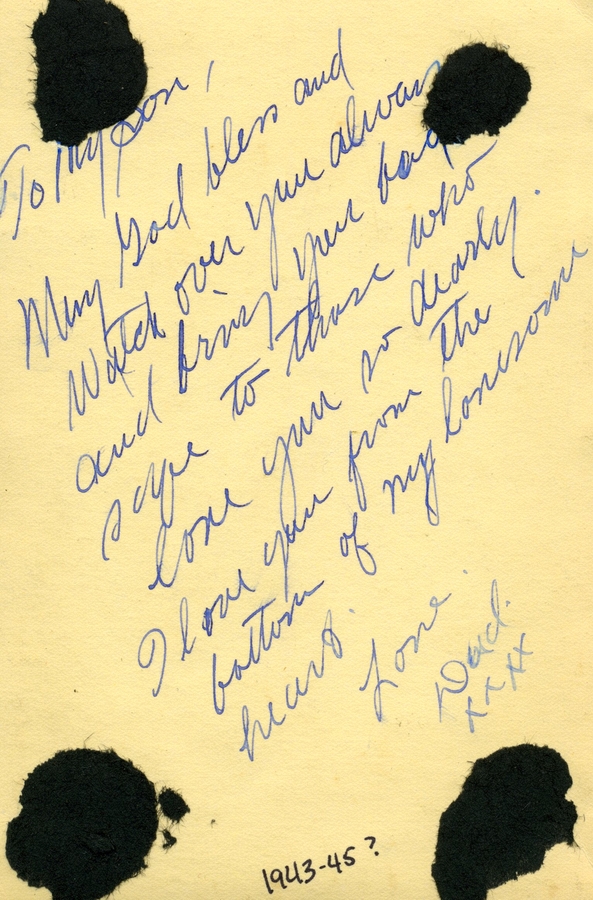 To My Son,
May God bless and
Watch over you always
and bring you back
safe to those who
love you so dearly.
I love you from the
bottom of my lonesome
heart.
Love.
Dad.
xxxx
1943-45?